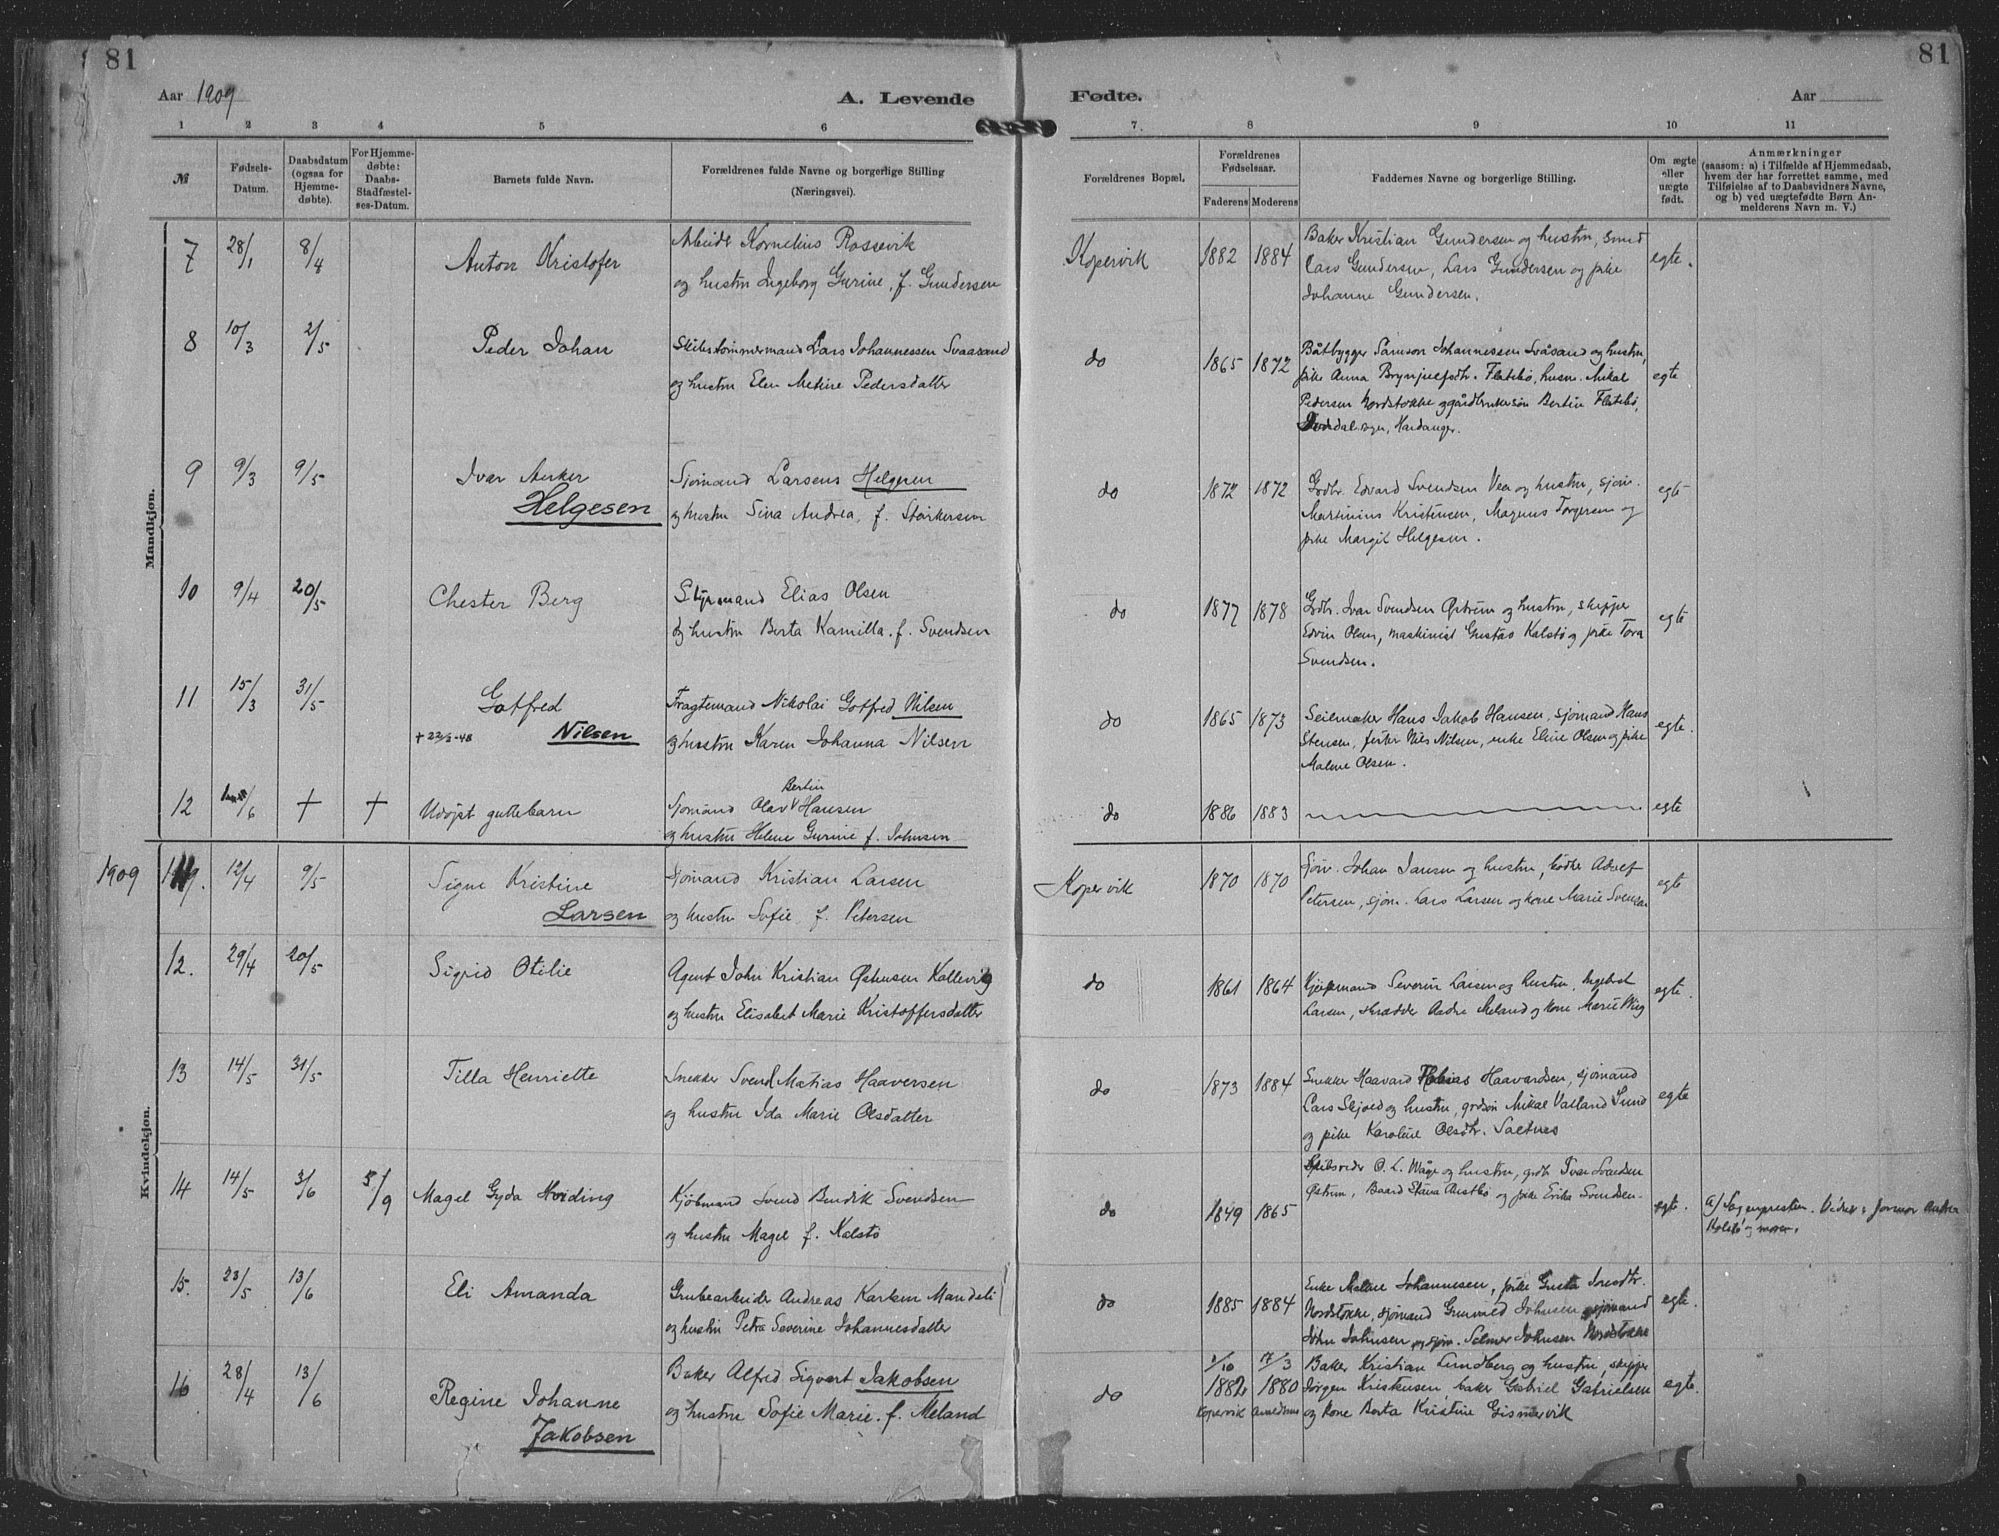 81
81
Aar 1909
A. Levende
Fødte.
Aar
1 2 3 4 5 6
7 8 9 10 11
№
Fødsels-
Datum.
Daabsdatum
(ogsaa for
Hjemme-
døbte).
For Hjemme-
døbte:
Daabs-
Stadfæstel-
ses-Datum.
Barnets fulde Navn.
Forældrenes fulde Navne og borgerlige Stilling
(Næringsvei).
Forældrenes Bopæl.
Forældrenes
Fødselsaar.
Faderens
Moderens
Faddernes Navne og borgerlige Stilling.
Om ægte
eller
uægte
født.
Anmærkninger
(saasom: a) i Tilfælde af Hjemmedaab,
hvem der har forrettet samme, med
Tilføielse af to Daabsvidners Navne,
og b) ved uægtefødte Børn An-
melderens Navn m. V.)
Mandkjøn.
7 28/1 8/4 Anton Kristofer
Arbeidr Kornelius Rossevik
og hustru Ingeborg Gurine, f. Gundersen
Kopervik 1882 1884
Baker Kristian Gundersen og hustru, smed
Lars Gundersen, Lars Gundersen og pike
Johanne Gundersen.
egte.
8 10/3 2/5 Peder Johan
Skibstømmermand Lars Johannessen Svaasand
og hustru Elen Metine Pedersdatter
do 1865 1872
Båtbygger Samson Johannessen Svåsand og hustru,
pike Anna Brynjulfsdtr. Flatebø, husm. Mikal
Pedersen Nordstokke og gårdbrukersøn Bertin Flatebø,
sogn, Hardanger.
egte
9 9/3 9/5 Ivar Anker
Helgesen
Sjømand Larsens Helgesen
og hustru Sina Andrea, f. Størkersen
do 1872 1872
Grdbr. Edvard Svendsen Vea og hustru, sjøm.
Martinius Kristensen, Magnus Torgersen og
pike Margit Helgesen.
egte
10 9/4 20/5 Chester Berg
Styrmand Elias Olsen
og hustru Berta Kamilla, f. Svendsen
do 1877 1878
Grdbr. Ivar Svendsen Østrem og hustru, skipper
Edvin Olsen, maskinist Gustav Kalstø og pike Tora
Svendsen.
egte
11 15/3 31/5 Gotfred
+ 22/3-48 Nilsen
Fragtemand Nikolai Gotfred Nilsen
og hustru Karen Johanna Nilsen
do 1865 1873
Seilmaker Hans Jakob Hansen, sjømand Hans
Stensen, fisker Nils Nilsen, enke Eline Olsen og pike
Malene Olsen.
egte.
12 /6 + + Udøpt guttebarn
Bertin
Sjømand Olav V Hansen
og hustru Helene Gurine f. Johnsen
do 1886 1883
egte
Kvindekjøn.
1909
11. 12/4 9/5 Signe Kristine
Larsen
Sjømand Kristian Larsen
og hustru Sofie, f. Petersen
Kopervik 1870 1870
Sjøm. Johan Jansen og hustru, bødker Adolf
Petersen, sjøm. Lars Larsen og kone Marie Svensen
egte
12. 29/4 20/5 Sigrid Otilie
Agent John Kristian Østensen Kollevig
og hustru Elisabet Marie Kristoffersdatter
do 1861 1864
Kjøpmand Severin Larsen og hustru, Ingebret
Larsen, skrædder Andre Meland og kone Marie Wiig
egte.
13 14/5 31/5 Tilla Henriette
Snekker Svend Matias Haaversen
og hustru Ida Marie Olsdatter
do 1873 1884
Snekker Haavard Tobias Haavardsen, sjømand
Lars Skjold og hustru, grdsøn Mikal Valland Sund
og pike Karoline Olsdtr. Saltnes
egte
14 14/5 3/6 5/9 Magel Gyda Hviding
Kjøbmand Svend Bendik Svendsen
og hustru Magel f. Kalstø
do 1849 1865
Skibsreder O. L. Våge og hustru, grdbr Ivar Svendsen
Østrem, Baard Stava Austbø og pike Erika Svendsen
egte.
a) Sogneprsten. Vidner: Jormor Andrea
Kolstø og moren.
15. 23/5 13/6 Eli Amanda
Grubearbeider Andreas Karlsen Mandal
og hustru Petra Severine Johannesdatter
do 1885 1884
Enke Malene Johannesen, pike Greta
Nordstokke, sjømand Gunvald Johnsen, sjømand
John Johnsen og sjøm. Selmer Johnsen Nordstokke
egte.
16 28/4 13/6 Regine Johanne
Jakobsen
Baker Alfred Sigvert Jakobsen
og hustru Sofie Marie, f. Meland
do
1/10 17/3
1882 1880
Kopervik
Baker Kristian Lundberg og hustru, skipper
Jørgen Kristensen, baker Gabriel Gabrielsen
og kone Berta Kristine Gismervik
egte.